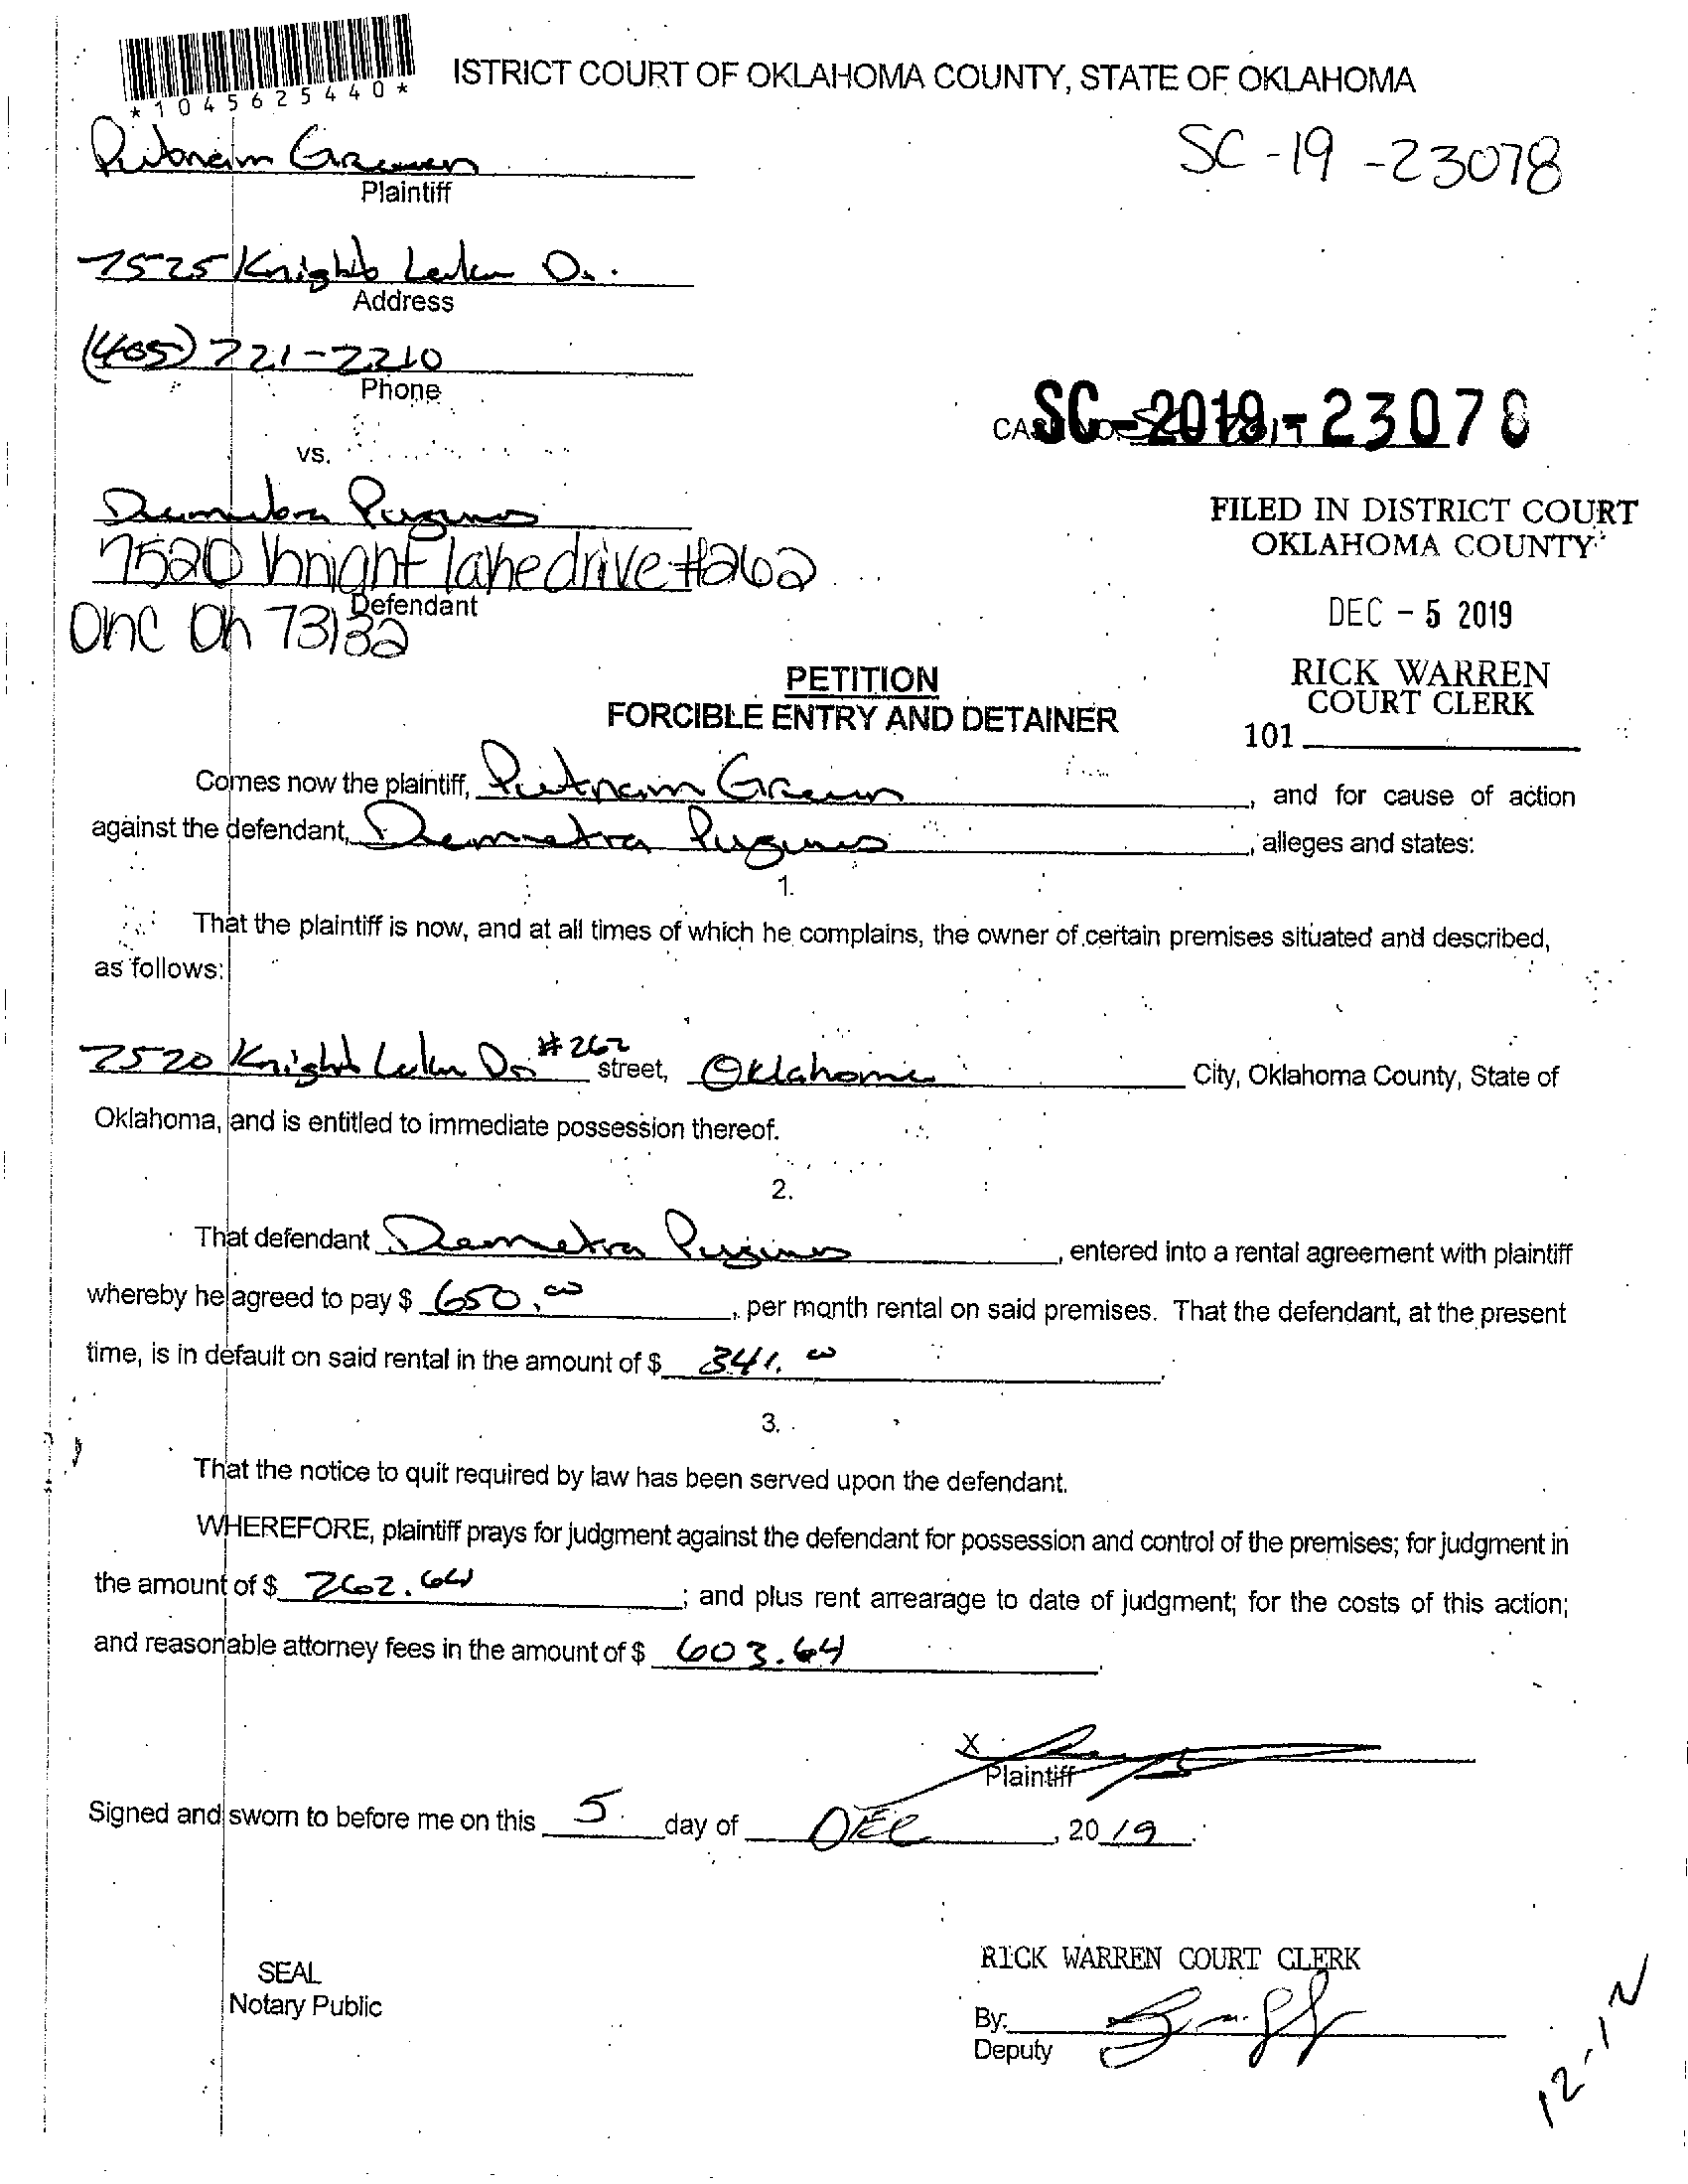 *1045625440*
ISTRICT COURT OF OKLAHOMA COUNTY, STATE OF OKLAHOMA
Putnam Green
SC-19-23078
Plaintiff
7525 Knights Lake Dr.
Address
(405) 721-2210
Phone
CA SC-2019-23078
vs.
Demetra
FILED IN DISTRICT COURT
OKLAHOMA COUNTY
7520 Knight lake drive #262
Defendant
OKC OK 73132
DEC - 5 2019
RICK WARREN
COURT CLERK
101
PETITION
FORCIBLE ENTRY AND DETAINER
Comes now the plaintiff, Putnam Green, and for cause of action
against the defendant, Demetra, alleges and states:
1.
That the plaintiff is now, and at all times of which he complains, the owner of certain premises situated and described,
as follows:
7520 Knights Lake Dr #262 street, Oklahoma City, Oklahoma County, State of
Oklahoma, and is entitled to immediate possession thereof.
2.
That defendant Demetra, entered into a rental agreement with plaintiff
whereby he agreed to pay $ 650.00, per month rental on said premises. That the defendant, at the present
time, is in default on said rental in the amount of $ 341.00.
3.
That the notice to quit required by law has been served upon the defendant.
WHEREFORE, plaintiff prays for judgment against the defendant for possession and control of the premises; for judgment in
the amount of $ 262.64; and plus rent arrearage to date of judgment; for the costs of this action;
and reasonable attorney fees in the amount of $ 603.64.
X
Plaintiff
Signed and sworn to before me on this 5 day of DEC, 2019.
SEAL
Notary Public
RICK WARREN COURT CLERK
By:
Deputy
12-12